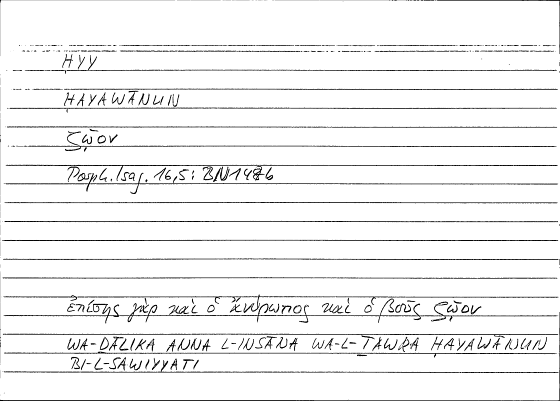 ḤYY
ḤAYAWĀNUN
ζῷον
Porph. Isag. 16,5: BN1486
ἐπίσης γὰρ καὶ ὁ ἄνθρωπος καὶ ὁ βοῦς ζῷον
WA-ḎĀLIKA ANNA L-INSĀNA WA-L-ṮAWRA ḤAYAWĀNUN
BI-L-SAWIYYATI